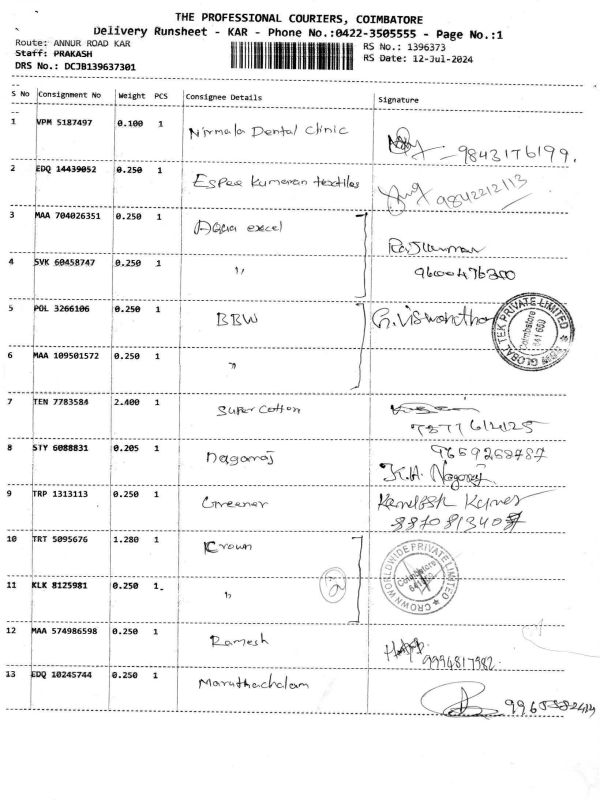 THE PROFESSIONAL COURIERS, COIMBATORE
Delivery Runsheet - KAR - Phone No.:0422-3505555 - Page No.:1
Route: ANNUR ROAD KAR
Staff: PRAKASH
DRS No.: DCJB139637301
RS No.: 1396373
RS Date: 12-Jul-2024
S No Consignment No Weight PCS Consignee Details Signature
1 VPM 5187497 0.100 1 Nirmala Dental Clinic
9843176199.
2 EDQ 14439052 0.250 1 Espee Kumaran textiles
9842212113
3 MAA 704026351 0.250 1 Aqua excel Rajkumar
4 SVK 60458747 0.250 1 "
9600476300
5 POL 3266106 0.250 1 BBW G. Viswanatha
GLOBAL TEK PRIVATE LIMITED
Coimbatore
641 659
6 MAA 109501572 0.250 1 "
7 TEN 7783584 2.400 1 Super Cotton
8 STY 6088831 0.205 1 Nagaraj 9659268487
K.A. Nagaraj
9 TRP 1313113 0.250 1 Greener
10 TRT 5095676 1.280 1 Crown
CROWN WORLDWIDE PRIVATE LIMITED
Coimbatore
11 KLK 8125981 0.250 1 "
12 MAA 574986598 0.250 1 Ramesh
9994817982.
13 EDQ 10245744 0.250 1 Maruthachalam